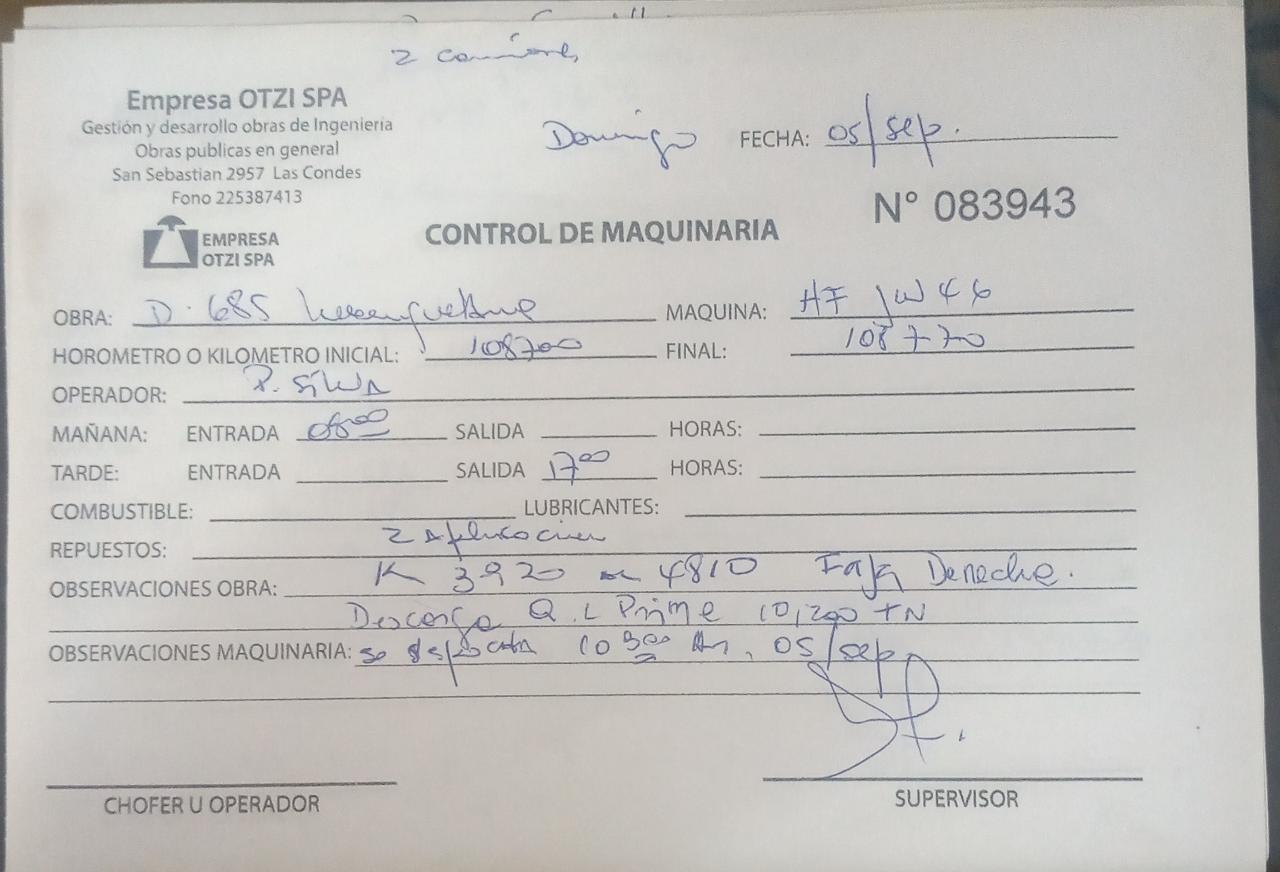 2 camiones
Empresa OTZI SPA
Gestión y desarrollo obras de Ingeniería
Obras publicas en general
San Sebastian 2957 Las Condes
Fono 225387413
EMPRESA
OTZI SPA
Domingo FECHA: 05/sep.
N° 083943
CONTROL DE MAQUINARIA
OBRA: D. 685 MAQUINA: HF JW 46
HOROMETRO O KILOMETRO INICIAL: 108700 FINAL: 108770
OPERADOR: P. Silva
MAÑANA: ENTRADA 08:00 SALIDA HORAS:
TARDE: ENTRADA SALIDA 17:00 HORAS:
COMBUSTIBLE: LUBRICANTES:
REPUESTOS: 2 Aplicacion
OBSERVACIONES OBRA: K 3920 4810 Faja Derecha.
Descarga Q.L Prime 10,200 TN
OBSERVACIONES MAQUINARIA: se 05/sep
CHOFER U OPERADOR SUPERVISOR